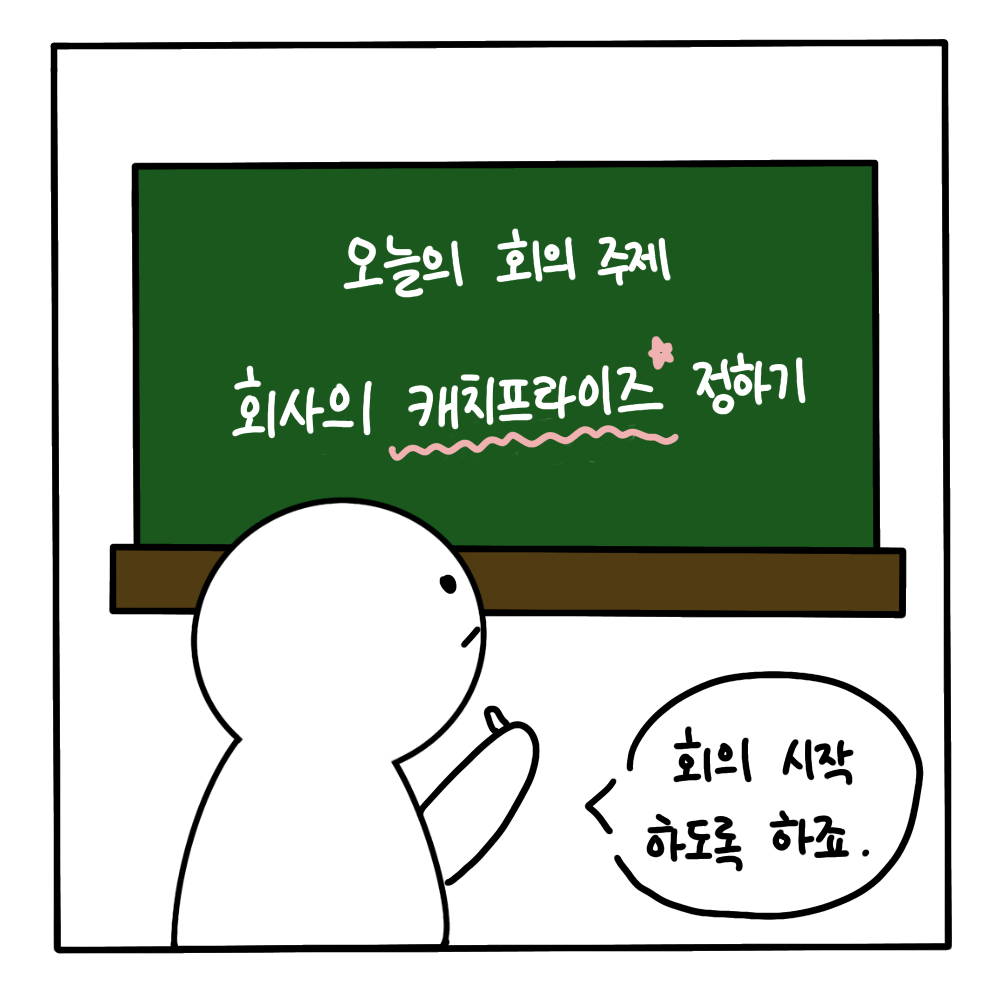 오늘의 회의 주제
회사의 캐치프라이즈 정하기
회의 시작
하도록 하죠.